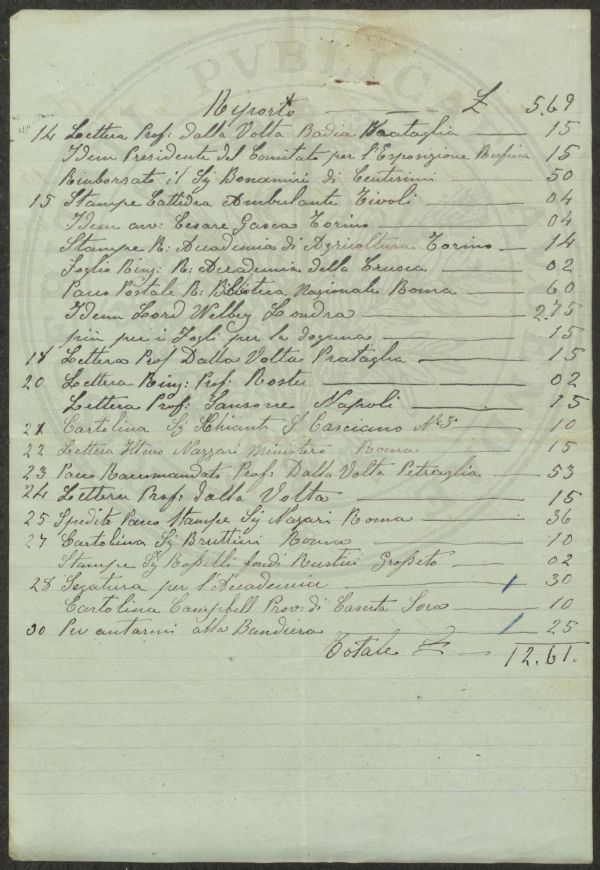 Riporto £ 5.69
14 Lettera Prof: dalla Volta Badia Prataglia 15
Idem Presidente del Comitato per l'Esposizione Rufina 15
Rimborsato il Sig Bonamini di Centesimi 50
15 Stampe Cattedra Ambulante Tivoli 04
Idem avv: Cesare Gasca Torino 04
Stampe R: Accademia di Agricoltura Torino 14
Foglio Ring: R: Accademia della Crusca 02
Pacco Postale R: Biblioteca Nazionale Roma 60
Idem Lord Welbey Londra 2.75
più per i fogli per la dogana 15
18 Lettera Prof Dalla Volta Prataglia 15
20 Lettera Ring: Prof: Roster 02
Lettera Prof: Sansone Napoli 15
21 Cartolina Sig Chianti S Casciano 10
22 Lettera Nazzari Ministero Roma 15
23 Pacco Raccomandato Prof: Dalla Volta Petraglia 53
24 Lettera Prof: dalla Volta 15
25 Spedito Pacco Stampe Sig Nazari Roma 36
27 Cartolina Sig Bruttini Roma 10
Stampe Sig fondi Rustici Grosseto 02
28 Segatura per l'Accademia 30
Cartolina Campbell Prov: di Caserta Sora 10
30 Per alla Bandiera 25
Totale £ 12.61.